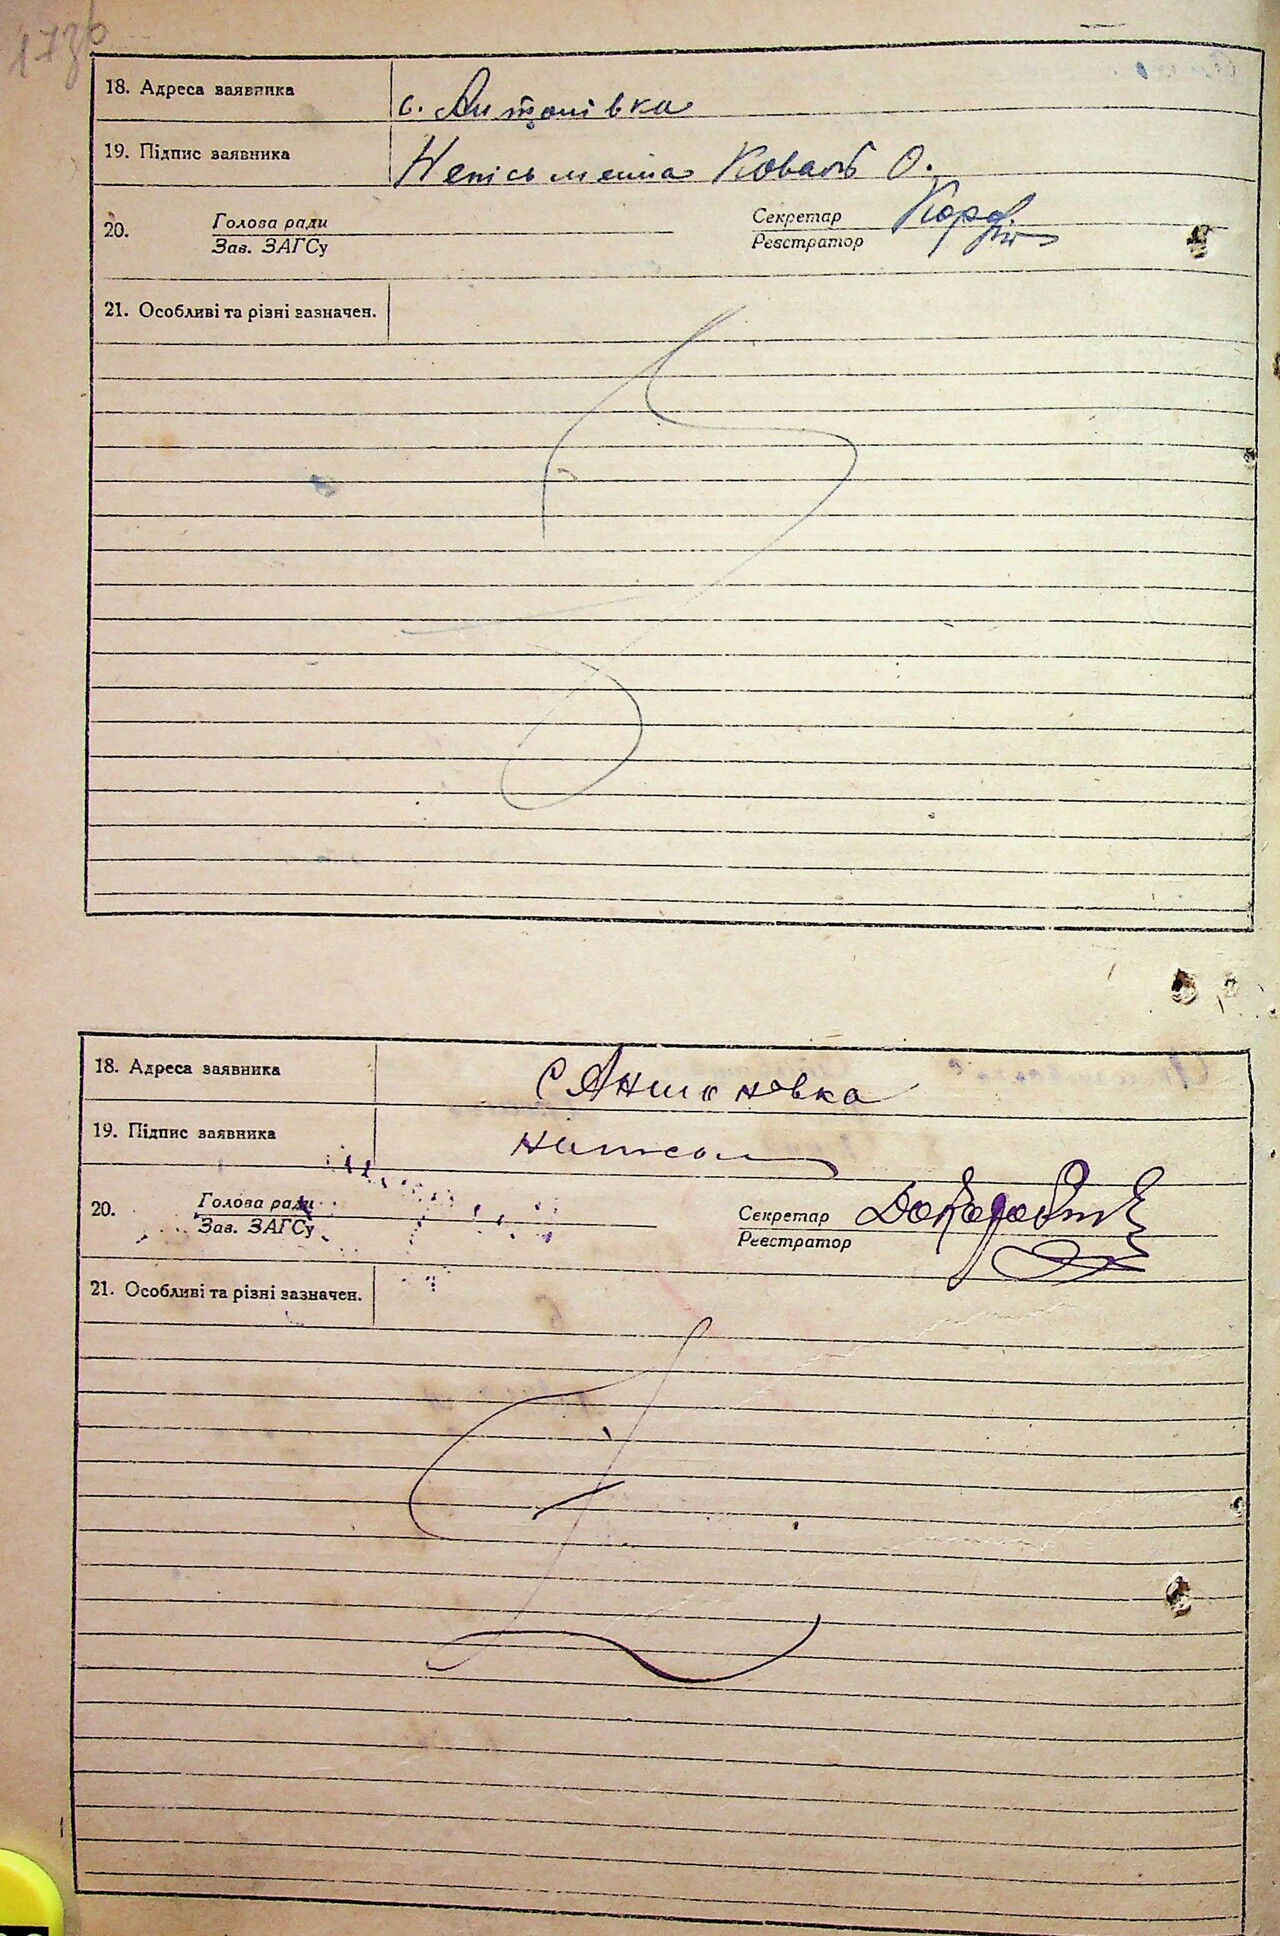 173б
18. Адреса заявника с. Антонівка
19. Підпис заявника Неписьменна Коваль О.
20. Голова ради Секретар
Зав. ЗАГСу Реєстратор
21. Особливі та різні зазначен.
18. Адреса заявника с Антоновка
19. Підпис заявника
20. Голова ради Секретар
Зав. ЗАГСу Реєстратор
21. Особливі та різні зазначен.